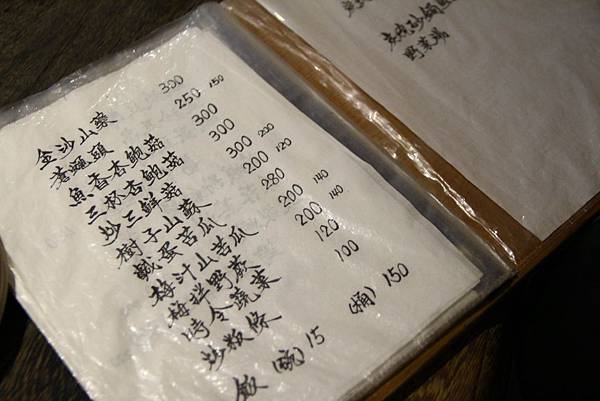 金沙山藥 300
蒼蠅頭 250 150
魚香杏鮑菇 300
三杯杏鮑菇 300
炒三鮮菇 300 200
樹子山蘇 200 120
鹹蛋苦瓜 280
梅汁山苦瓜 200 140
梅拌野蕨 200 140
時令蔬菜 120
炒粄條 100
飯 (碗) 15 (桶) 150
砂鍋
野菜湯